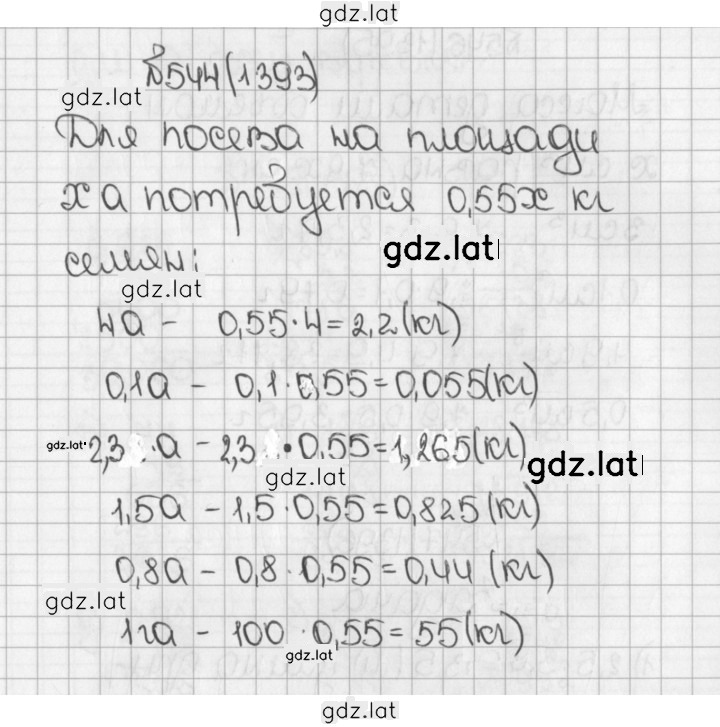 gdz.lat
№544(1393)
gdz.lat
Для посева на площади
х а потребуется 0,55х кг
gdz.lat
семян:
gdz.lat
4а - 0,55·4=2,2(кг)
0,1а - 0,1·0,55=0,055(кг)
gdz.lat
2,3 ·а - 2,3 ·0,55=1,265(кг)
gdz.lat
gdz.lat
1,5а - 1,5·0,55=0,825(кг)
0,8а - 0,8·0,55=0,44 (кг)
gdz.lat
1га - 100·0,55=55(кг)
gdz.lat
gdz.lat